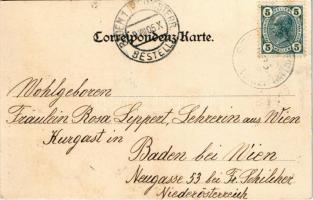 Correspondenz-Karte.
BESTELLT
5 5
Wohlgeboren
Fräulein Rosa Lippert, Lehrerin aus Wien
Kurgast in
Baden bei Wien
Neugasse 53 bei Fr. Schilcher
Niederösterreich